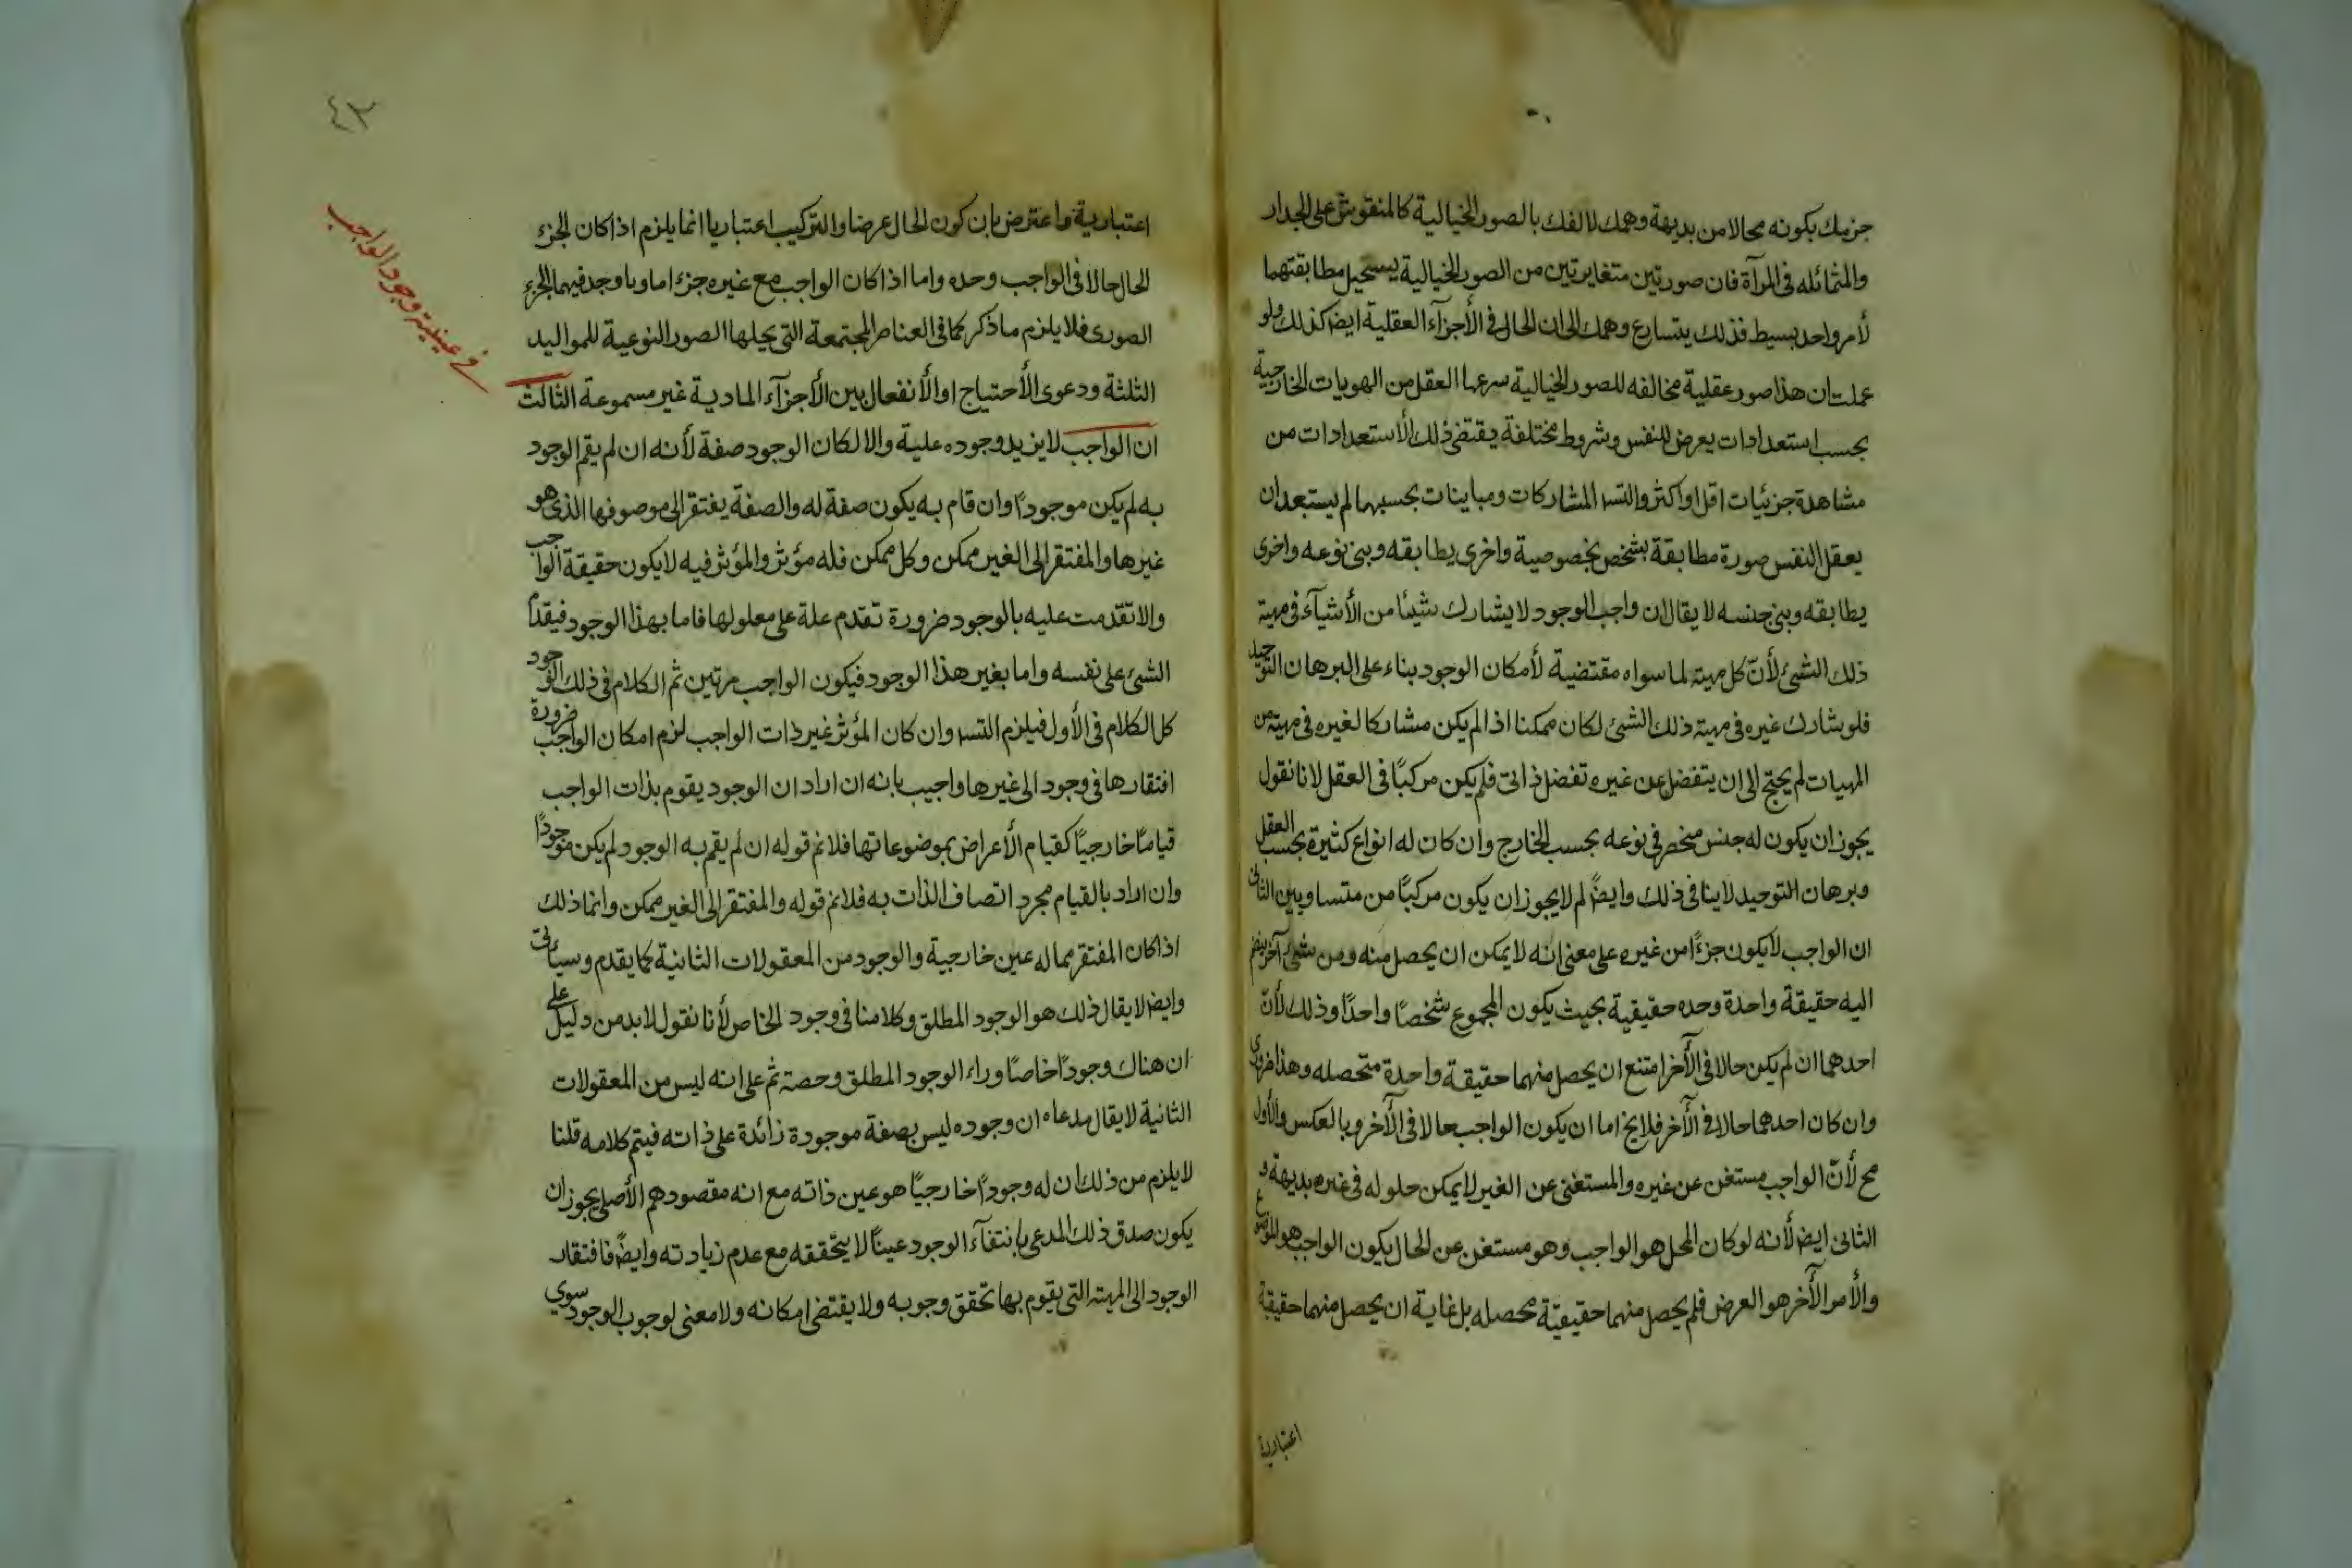 جزمك بكونه محالا من بديهة وهمك لالفك بالصور الخيالية كالمنقوش على الجدار
والمتمائله فى المرآة فان صورتين متغايرتين من الصور الخيالية يستحيل مطابقتهما
لأمر واحد بسيط فذلك يتسارع وهمك الى ان الحال فى الأجزآء العقلية ايضا كذلك ولو
عملت ان هذا صور عقلية مخالفه للصور الخيالية العقل من الهويات الخارجية
بحسب استعدادات يعرض للنفس وشروط مختلفة يقتضى ذلك الأستعدادات من
مشاهدة جزئيات اقل او اكثر والتسه المشاركات ومباينات بحسبهما لم يستبعد ان
يعقل النفس صورة مطابقة بشخص بخصوصية واخرى يطابقه وبنى نوعه واخرى
يطابقه وبنى جنسه لا يقال ان واجب الوجود لا يشارك شيئا من الأشيآء فى مهية
ذلك الشئ لأنّ كل مهية لما سواه مقتضية لأمكان الوجود بناء على البرهان التوحيد
فلو شارك غيره فى مهية ذلك الشئ لكان ممكنا اذا لم يكن مشاركا لغيره فى مهية من
المهيات لم يحتج الى ان يتفضل عن غيره تفضل ذاتى فلم يكن مركبًا فى العقل لانا نقول
يجوز ان يكون له جنس منحصر فى نوعه بحسب الخارج وان كان له انواع كثيرة بحسب العقل
وبرهان التوحيد لا ينافى ذلك وايضً لم لا يجوز ان يكون مركبًا من متساويين الثانى
ان الواجب لا يكون جزءًا من غيره على معنى انه لا يمكن ان يحصل منه ومن شئ آخر ينضم
اليه حقيقة واحدة وحده حقيقية بحيث يكون المجموع شخصًا واحدًا وذلك لأنّ
احدهما ان لم يكن حالا فى الآخر امتنع ان يحصل منهما حقيقة واحدة متحصله وهذا ضرورى
وان كان احدهما حالا فى الآخر فلا يخ اما ان يكون الواجب حالا فى الآخر وبالعكس والأول
مح لأنّ الواجب مستغن عن غيره والمستغنى عن الغير لا يمكن حلوله فى غيره بديهة و
الثانى ايضا لأنه لو كان المحل هو الواجب وهو مستغن عن الحال يكون الواجب هو الموضوع
والأمر الآخر هو العرض فلم يحصل منهما حقيقيّة محصله بل غاية ان يحصل منهما حقيقة
اعتبارية
٤٣
فى عينية وجود الواجب
اعتبارية واعترض بان كون الحال عرضا والتركيب اعتباريا انما يلزم اذا كان الجزء
الحال حالا فى الواجب وحده واما اذا كان الواجب مع غيره جزءا ماديا وجد فيهما الجزء
الصورى فلا يلزم ما ذكر كما فى العناصر المجتمعة التى يحلها الصور النوعية للمواليد
الثلثة ودعوى الأحتياج او الأنفعال بين الأجزآء المادية غير مسموعة الثالث
ان الواجب لا يزيد وجوده علية والا لكان الوجود صفة لأنه ان لم يقم الوجود
به لم يكن موجودًا وان قام به يكون صفة له والصفة يفتقر الى موصوفها الذى هو
غيرها والمفتقر الى الغير ممكن وكل ممكن فله مؤثر والمؤثر فيه لا يكون حقيقة الواجب
والا تقدمت عليه بالوجود ضرورة تقدم علة على معلولها فاما بهذا الوجود فيقدم
الشئ على نفسه واما بغير هذا الوجود فيكون الواجب مرتين ثم الكلام فى ذلك الوجود
كل الكلام فى الأول فيلزم التسه وان كان المؤثر غير ذات الواجب لزم امكان الواجب ضرورة
افتقارها فى وجود الى غيرها واجيب بانه ان اراد ان الوجود يقوم بذات الواجب
قيامًا خارجيًا كقيام الأعراض بموضوعاتها فلانم قوله ان لم يقم به الوجود لم يكن موجودًا
وان اراد بالقيام مجرد اتصاف الذات به فلانم قوله والمفتقر الى الغير ممكن وانما ذلك
اذا كان المفتقر مما له عين خارجية والوجود من المعقولات الثانية كما يقدم وسيأتى
وايضا لا يقال ذلك هو الوجود المطلق وكلامنا فى وجود الخاص لأنا نقول لا بد من دليل على
ان هناك وجودًا خاصًا وراء الوجود المطلق وحصته ثم على انه ليس من المعقولات
الثانية لا يقال مدعاه ان وجوده ليس بصفة موجودة زائدة على ذاته فيتم كلامه قلنا
لا يلزم من ذلك ان له وجودًا خارجيًا هو عين ذاته مع انه مقصودهم الأصلى يجوز ان
يكون صدق ذلك المدعى بإنتفآء الوجود عينًا لا يتحققه مع عدم زيادته وايضً فافتقار
الوجود الى المهية التى يقوم بها تحقق وجوبه ولا يقتضى امكانه ولا معنى لوجوب الوجود سوي